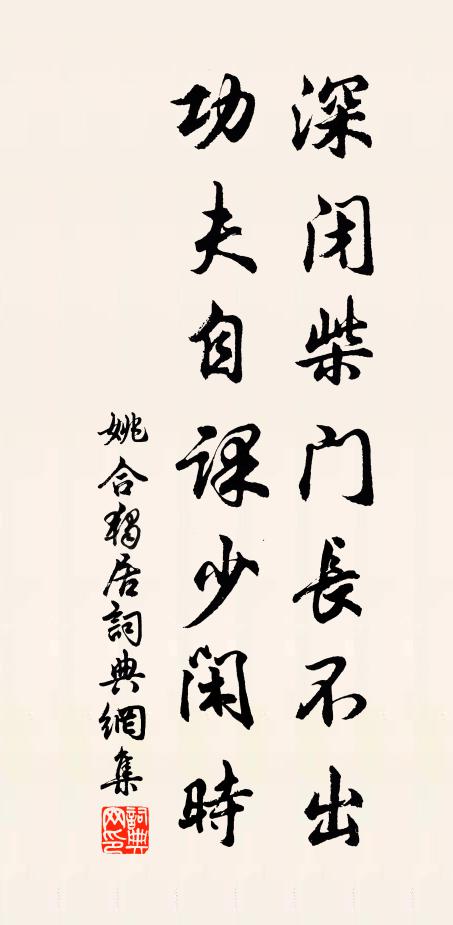 深闭柴门長不出
功夫自课少闲時
姚合獨居詞典網集
詞典网印